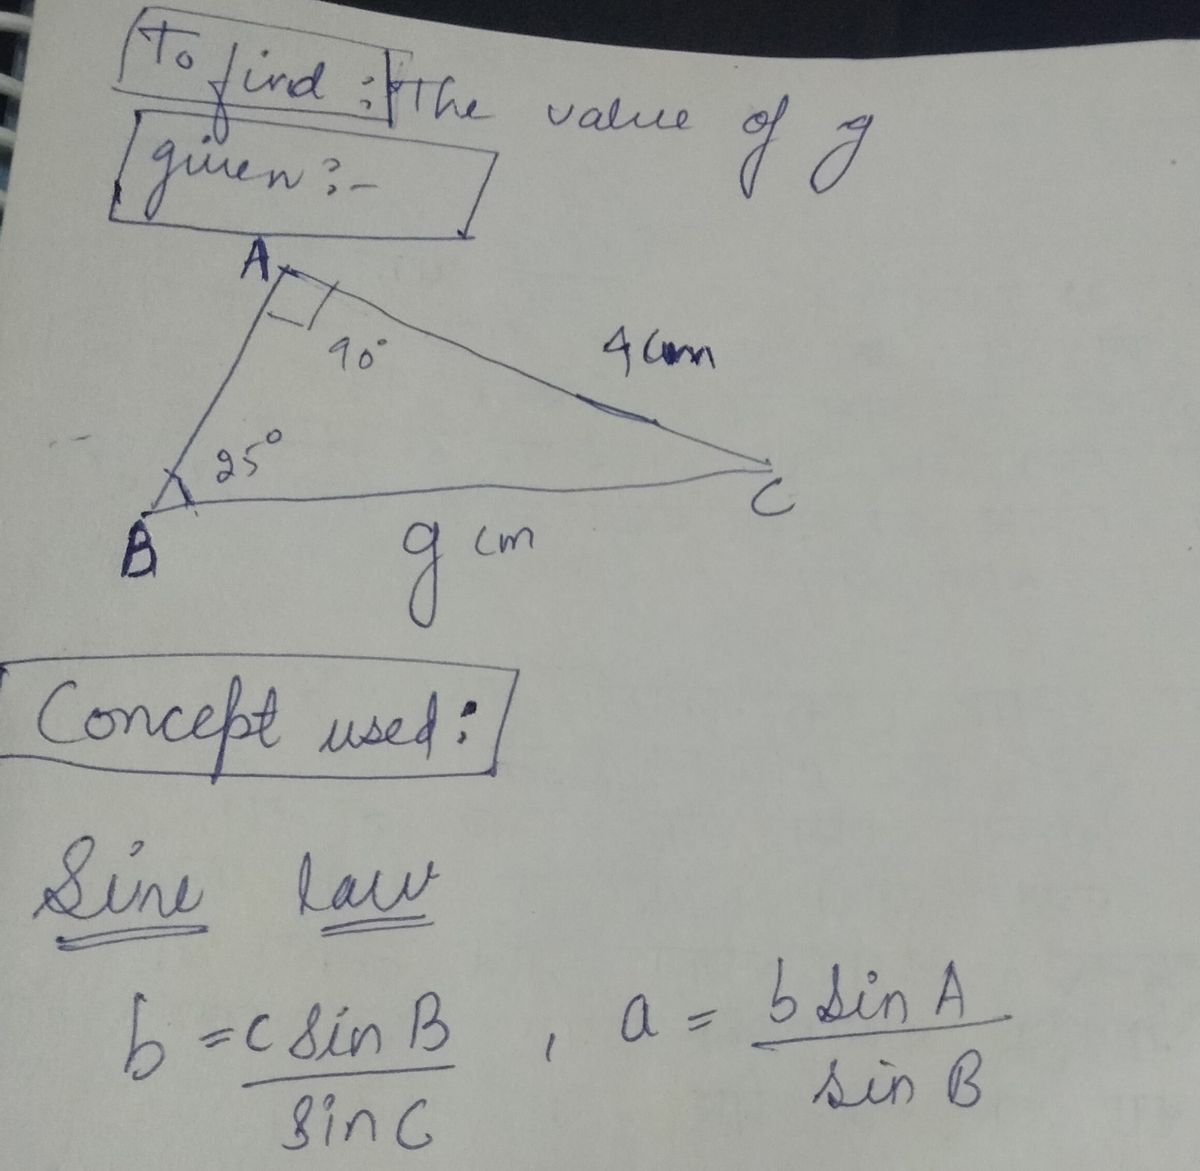 To find : The value of g
given :-
A
90° 4 cm
25°
B g cm C
Concept used :
Sine law
b = c sin B / sin C , a = b sin A / sin B